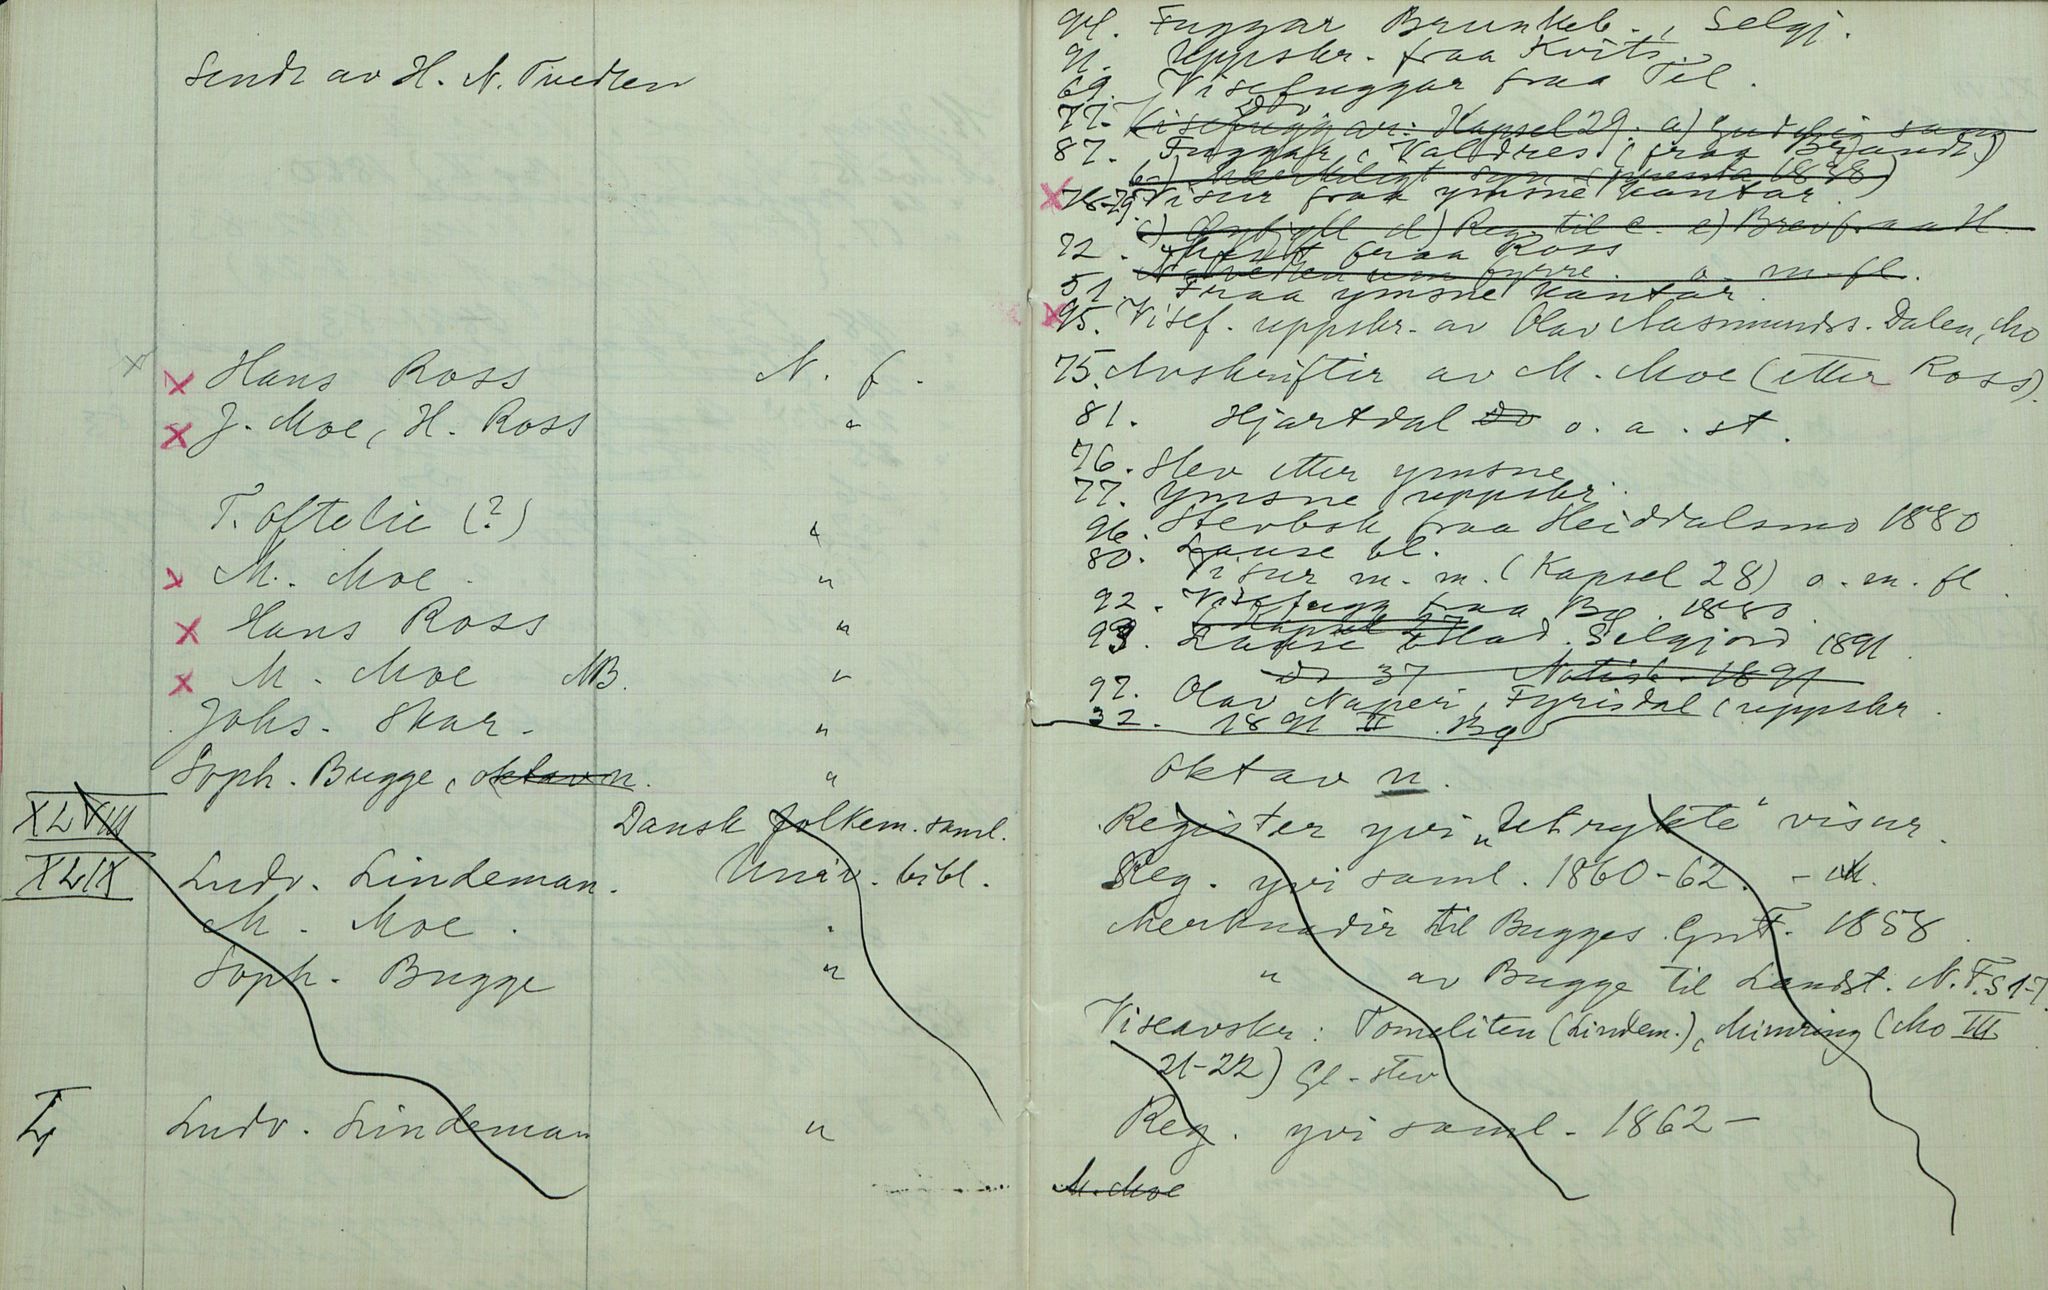 Sendt av H. N. Tvedten
Hans Ross N. f.
J. Moe, H. Ross "
T. Oftelie (?) "
M. Moe. "
Hans Ross "
M. Moe MB. "
Johs. Skar. "
Soph. Bugge, oktav n. "
XLVIII Dansk folkem. saml.
XLIX Ludv. Lindeman. Univ. bibl.
M. Moe. "
Soph. Bugge "
L Ludv. Lindeman "
94. Fuggar Brunkeb., Selgj.
91. Uppskr. fraa Kvits.
69. Visefuggar fraa Tel.
77. Visefuggar: Kapsel 29. a)
87. Fuggar, Valdres (fraa
b) syn
78-79. Visur fraa ymsne kantar.
d) Reg. til c. e) Brev fraa H.
72. fraa Ross
o. m. fl.
51. Fraa ymsne kantar
95. Visef. uppskr. av Olav Aasmundss. Dalen, Mo
75. Avskrifter av M. Moe (etter Ross).
81. Hjartdal do o. a. st.
76. Stev etter ymsne
77. Ymsne uppskr.
96. Stevbok fraa Heiddalsmo 1880
80. Lause bl.
Visur m. m. (Kapsel 28) o. m. fl.
92. Visefugg fraa Bø. 1880.
Kapsel 27
93. Lause blad. Selgjord 1891.
do 37 Notisb. 1891
97. Olav Naper, Fyrisdal, uppskr.
32. 1891 II Bø
Oktav n.
Register yvi "Utrykte" visur.
Reg. yvi saml. 1860-62. - M.
Merknadir til Bugges GnF. 1858.
" av Bugge til Landst. N.F. S 1-7
Viseavskr: Tomeliten (Lindem.), Mimring (Mo III
21-22) Gl-stev
Reg. yvi saml. 1862 -
M. Moe